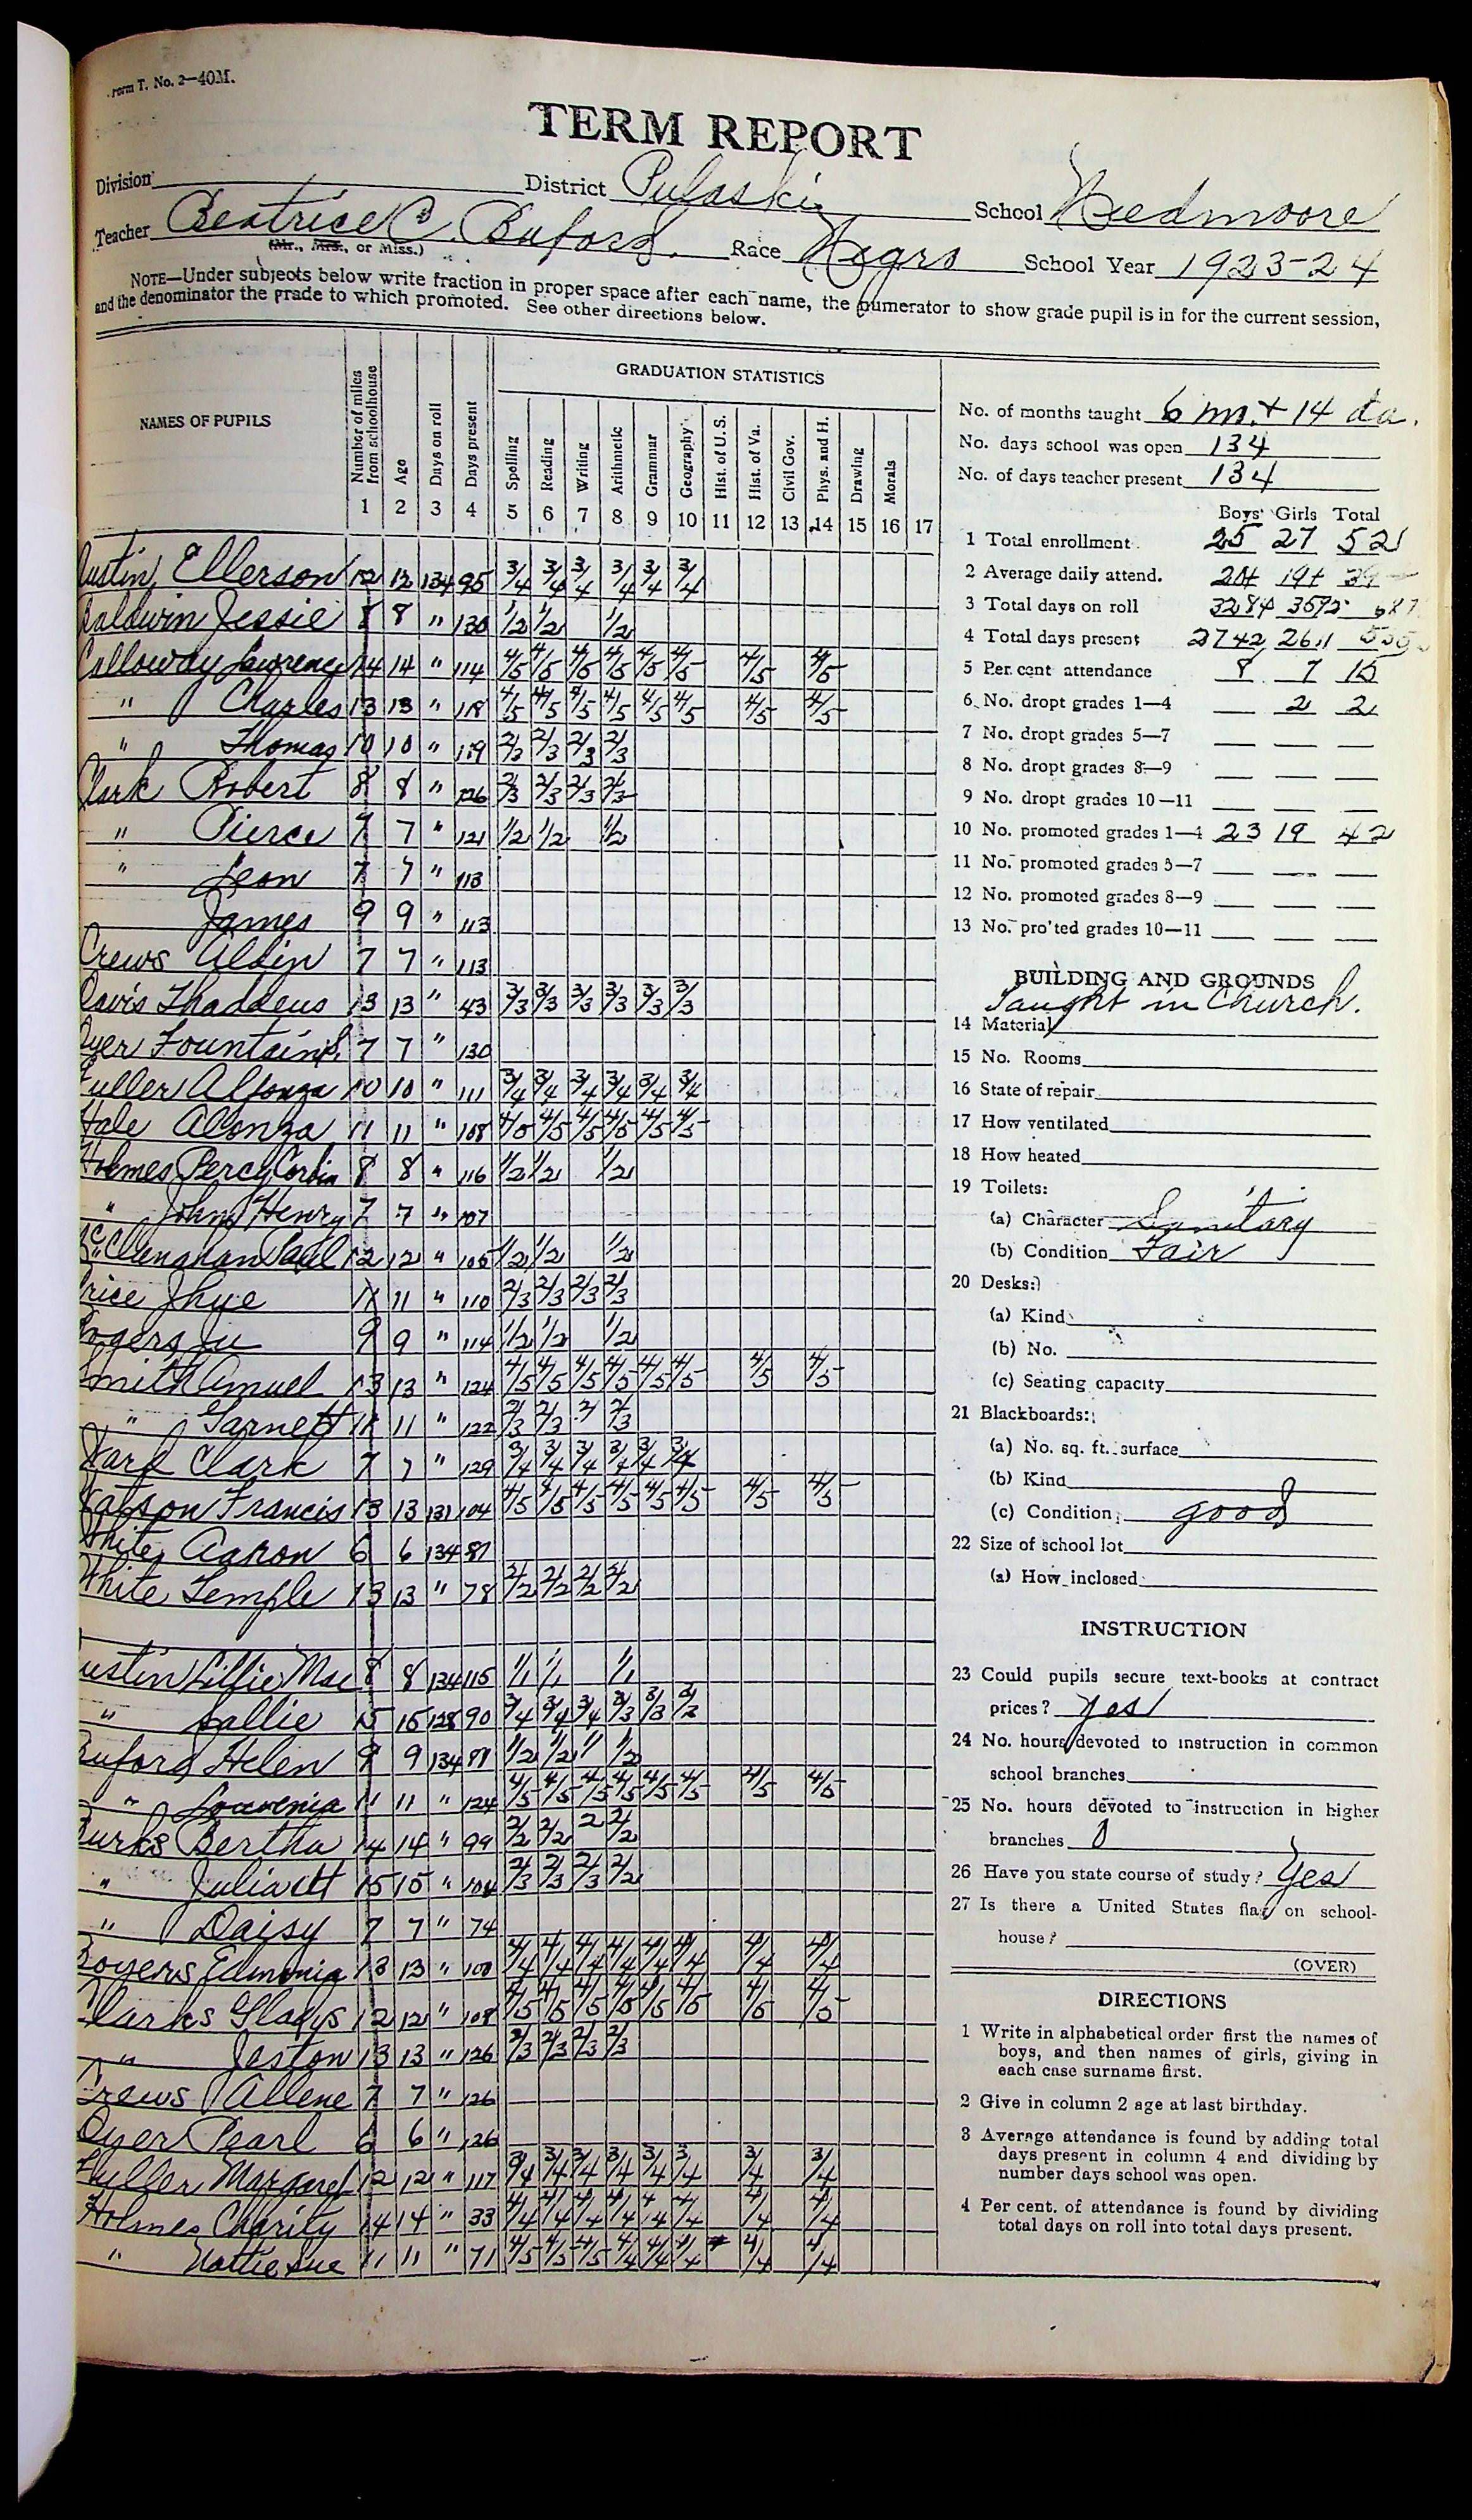 Form T. No. 2—40M.
TERM REPORT
Division District Pulaski School Needmoore
Teacher Beatrice C. Buford. Race Negro School Year 1923-24
(Mr., Mrs., or Miss.)
NOTE—Under subjects below write fraction in proper space after each name, the numerator to show grade pupil is in for the current session,
and the denominator the grade to which promoted. See other directions below.
NAMES OF PUPILS
Number of miles from schoolhouse
Age
Days on roll
Days present
GRADUATION STATISTICS
Spelling
Reading
Writing
Arithmetic
Grammar
Geography
Hist. of U. S.
Hist. of Va.
Civil Gov.
Phys. and H.
Drawing
Morals
1 2 3 4 5 6 7 8 9 10 11 12 13 14 15 16 17
Austin, Ellerson 12 12 134 95 3/4 3/4 3/4 3/4 3/4 3/4
Baldwin Jessie 8 8 " 130 1/2 1/2 1/2
Calloway Lawrence 14 14 " 114 4/5 4/5 4/5 4/5 4/5 4/5 4/5 4/5
" Charles 13 13 " 118 4/5 4/5 4/5 4/5 4/5 4/5 4/5 4/5
" Thomas 10 10 " 119 2/3 2/3 2/3 2/3
Clark Robert 8 8 " 126 2/3 2/3 2/3 2/3
" Pierce 7 7 " 121 1/2 1/2 1/2
" Leon 7 7 " 113
James 9 9 " 113
Crews Albin 7 7 " 113
Davis Thaddeus 13 13 " 43 3/3 3/3 3/3 3/3 3/3 3/3
Dyer Fountain 7 7 " 130
Fuller Alfonza 10 10 " 111 3/4 3/4 3/4 3/4 3/4 3/4
Hale Alonza 11 11 " 108 4/5 4/5 4/5 4/5 4/5 4/5
Holmes Percy Corbin 8 8 " 116 1/2 1/2 1/2
" John Henry 7 7 " 107
McClenahan Paul 12 12 " 105 1/2 1/2 1/2
Price 11 11 " 110 2/3 2/3 2/3 2/3
Rogers 9 9 " 114 1/2 1/2 1/2
Smith Amuel 13 13 " 124 4/5 4/5 4/5 4/5 4/5 4/5 4/5 4/5
" Garnett 11 11 " 122 2/3 2/3 2/ 2/3
Ward Clark 7 7 " 129 3/4 3/4 3/4 3/4 3/4 3/4
Watson Francis 13 13 131 104 4/5 4/5 4/5 4/5 4/5 4/5 4/5 4/5
White, Aaron 6 6 134 87
White Temple 13 13 " 78 2/2 2/2 2/2 2/2
Austin Lillie Mae 8 8 134 115 1/1 1/1 1/1
" Sallie 15 15 128 90 3/4 3/4 3/4 3/3 3/3 3/3
Buford Helen 9 9 134 81 1/2 1/2 1/ 1/2
" Louvenia 11 11 " 124 4/5 4/5 4/5 4/5 4/5 4/5 4/5 4/5
Burks Bertha 14 14 " 99 2/2 2/2 2 2/2
" Juliaett 15 15 " 104 2/3 2/3 2/3 2/2
" Daisy 7 7 " 74
Boyers Edmonia 13 13 " 100 4/4 4/4 4/4 4/4 4/4 4/4 4/4 4/4
Clarks Gladys 12 12 " 108 4/5 4/5 4/5 4/5 4/5 4/5 4/5 4/5
" Jeston 13 13 " 126 2/3 2/3 2/3 2/3
Crews Allene 7 7 " 126
Dyer Pearl 6 6 " 126
Fuller Margaret 12 12 " 117 3/4 3/4 3/4 3/4 3/4 3/4 3/4 3/4
Holmes Charity 14 14 " 33 4/4 4/4 4/4 4/4 4/4 4/4 4/4 4/4
" Hattie Sue 11 11 " 71 4/5 4/5 4/5 4/4 4/4 4/4 4/4 4/4
No. of months taught 6 m. + 14 da.
No. days school was open 134
No. of days teacher present 134
Boys Girls Total
1 Total enrollment 25 27 52
2 Average daily attend. 20+ 19+ 39
3 Total days on roll 3284 3592 687
4 Total days present 2742 2611 535
5 Per cent attendance 8 7 15
6 No. dropt grades 1—4 — 2 2
7 No. dropt grades 5—7 — — —
8 No. dropt grades 8—9 — — —
9 No. dropt grades 10—11 — — —
10 No. promoted grades 1—4 23 19 42
11 No. promoted grades 5—7 — — —
12 No. promoted grades 8—9 — — —
13 No. pro'ted grades 10—11 — — —
BUILDING AND GROUNDS
Taught in Church.
14 Material
15 No. Rooms
16 State of repair
17 How ventilated
18 How heated
19 Toilets:
(a) Character Sanitary
(b) Condition Fair
20 Desks:
(a) Kind
(b) No.
(c) Seating capacity
21 Blackboards:
(a) No. sq. ft. surface
(b) Kind
(c) Condition good
22 Size of school lot
(a) How inclosed
INSTRUCTION
23 Could pupils secure text-books at contract
prices? yes
24 No. hours devoted to instruction in common
school branches
25 No. hours devoted to instruction in higher
branches 0
26 Have you state course of study? Yes
27 Is there a United States flag on school-
house?
(OVER)
DIRECTIONS
1 Write in alphabetical order first the names of
boys, and then names of girls, giving in
each case surname first.
2 Give in column 2 age at last birthday.
3 Average attendance is found by adding total
days present in column 4 and dividing by
number days school was open.
4 Per cent. of attendance is found by dividing
total days on roll into total days present.